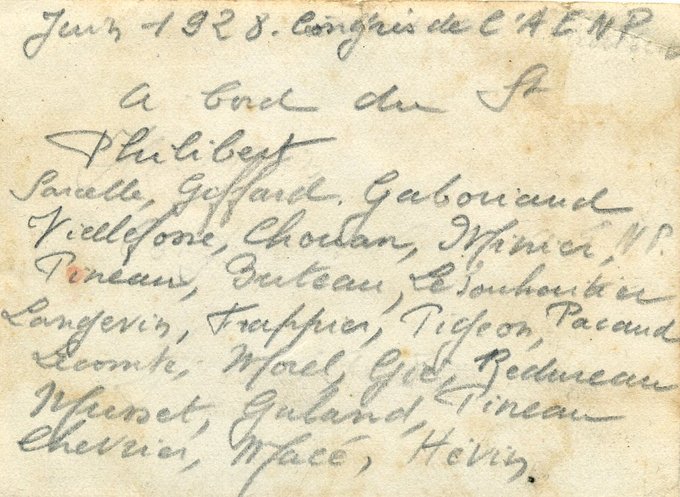 Juin 1928. Congrès de l'A E N P
A bord du St
Philibert
Sarcelle, Giffard. Gabouiaud
Villefosse, Chouan, Minier, N P.
Pineau, Buteau, Le Souhaitier
Langevin, Frappier, Pigeon, Pacaud
Lecomte, Morel, Redureau
Musset, Galand, Pineau
Chevrier, Macé, Hévin.